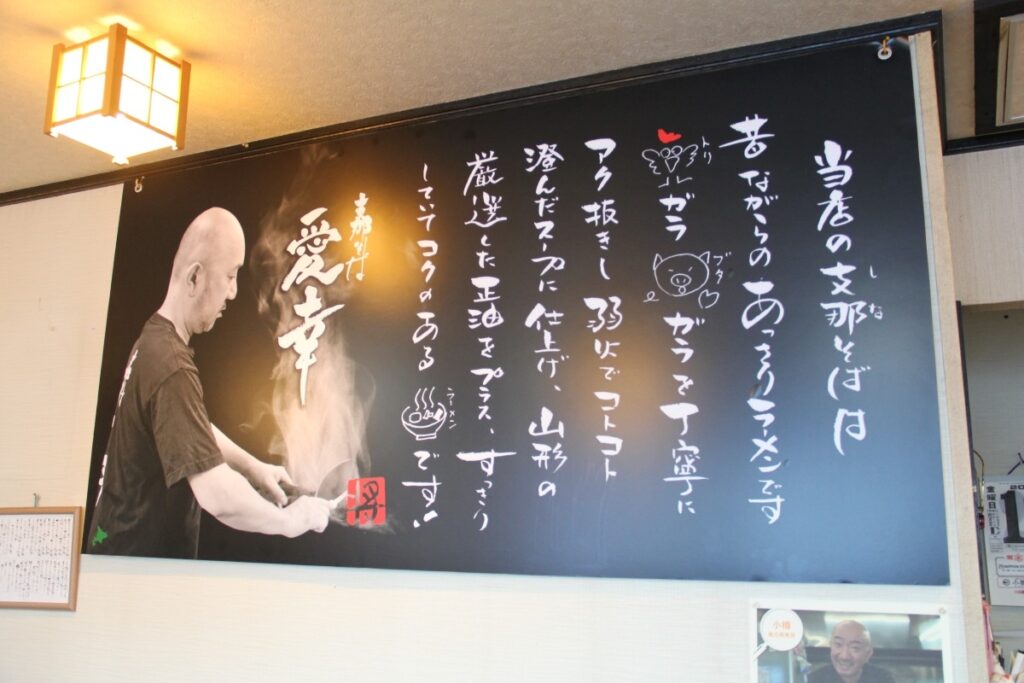 当店の支那そばは
しな
昔ながらのあっさりラーメンです
トリ
ガラ
ブタ
ガラを丁寧に
アク抜きし弱火でコトコト
澄んだスープに仕上げ、山形の
厳選した正油をプラス、すっきり
していてコクのある
ラーメン
です!
愛幸
小樽
金曜日